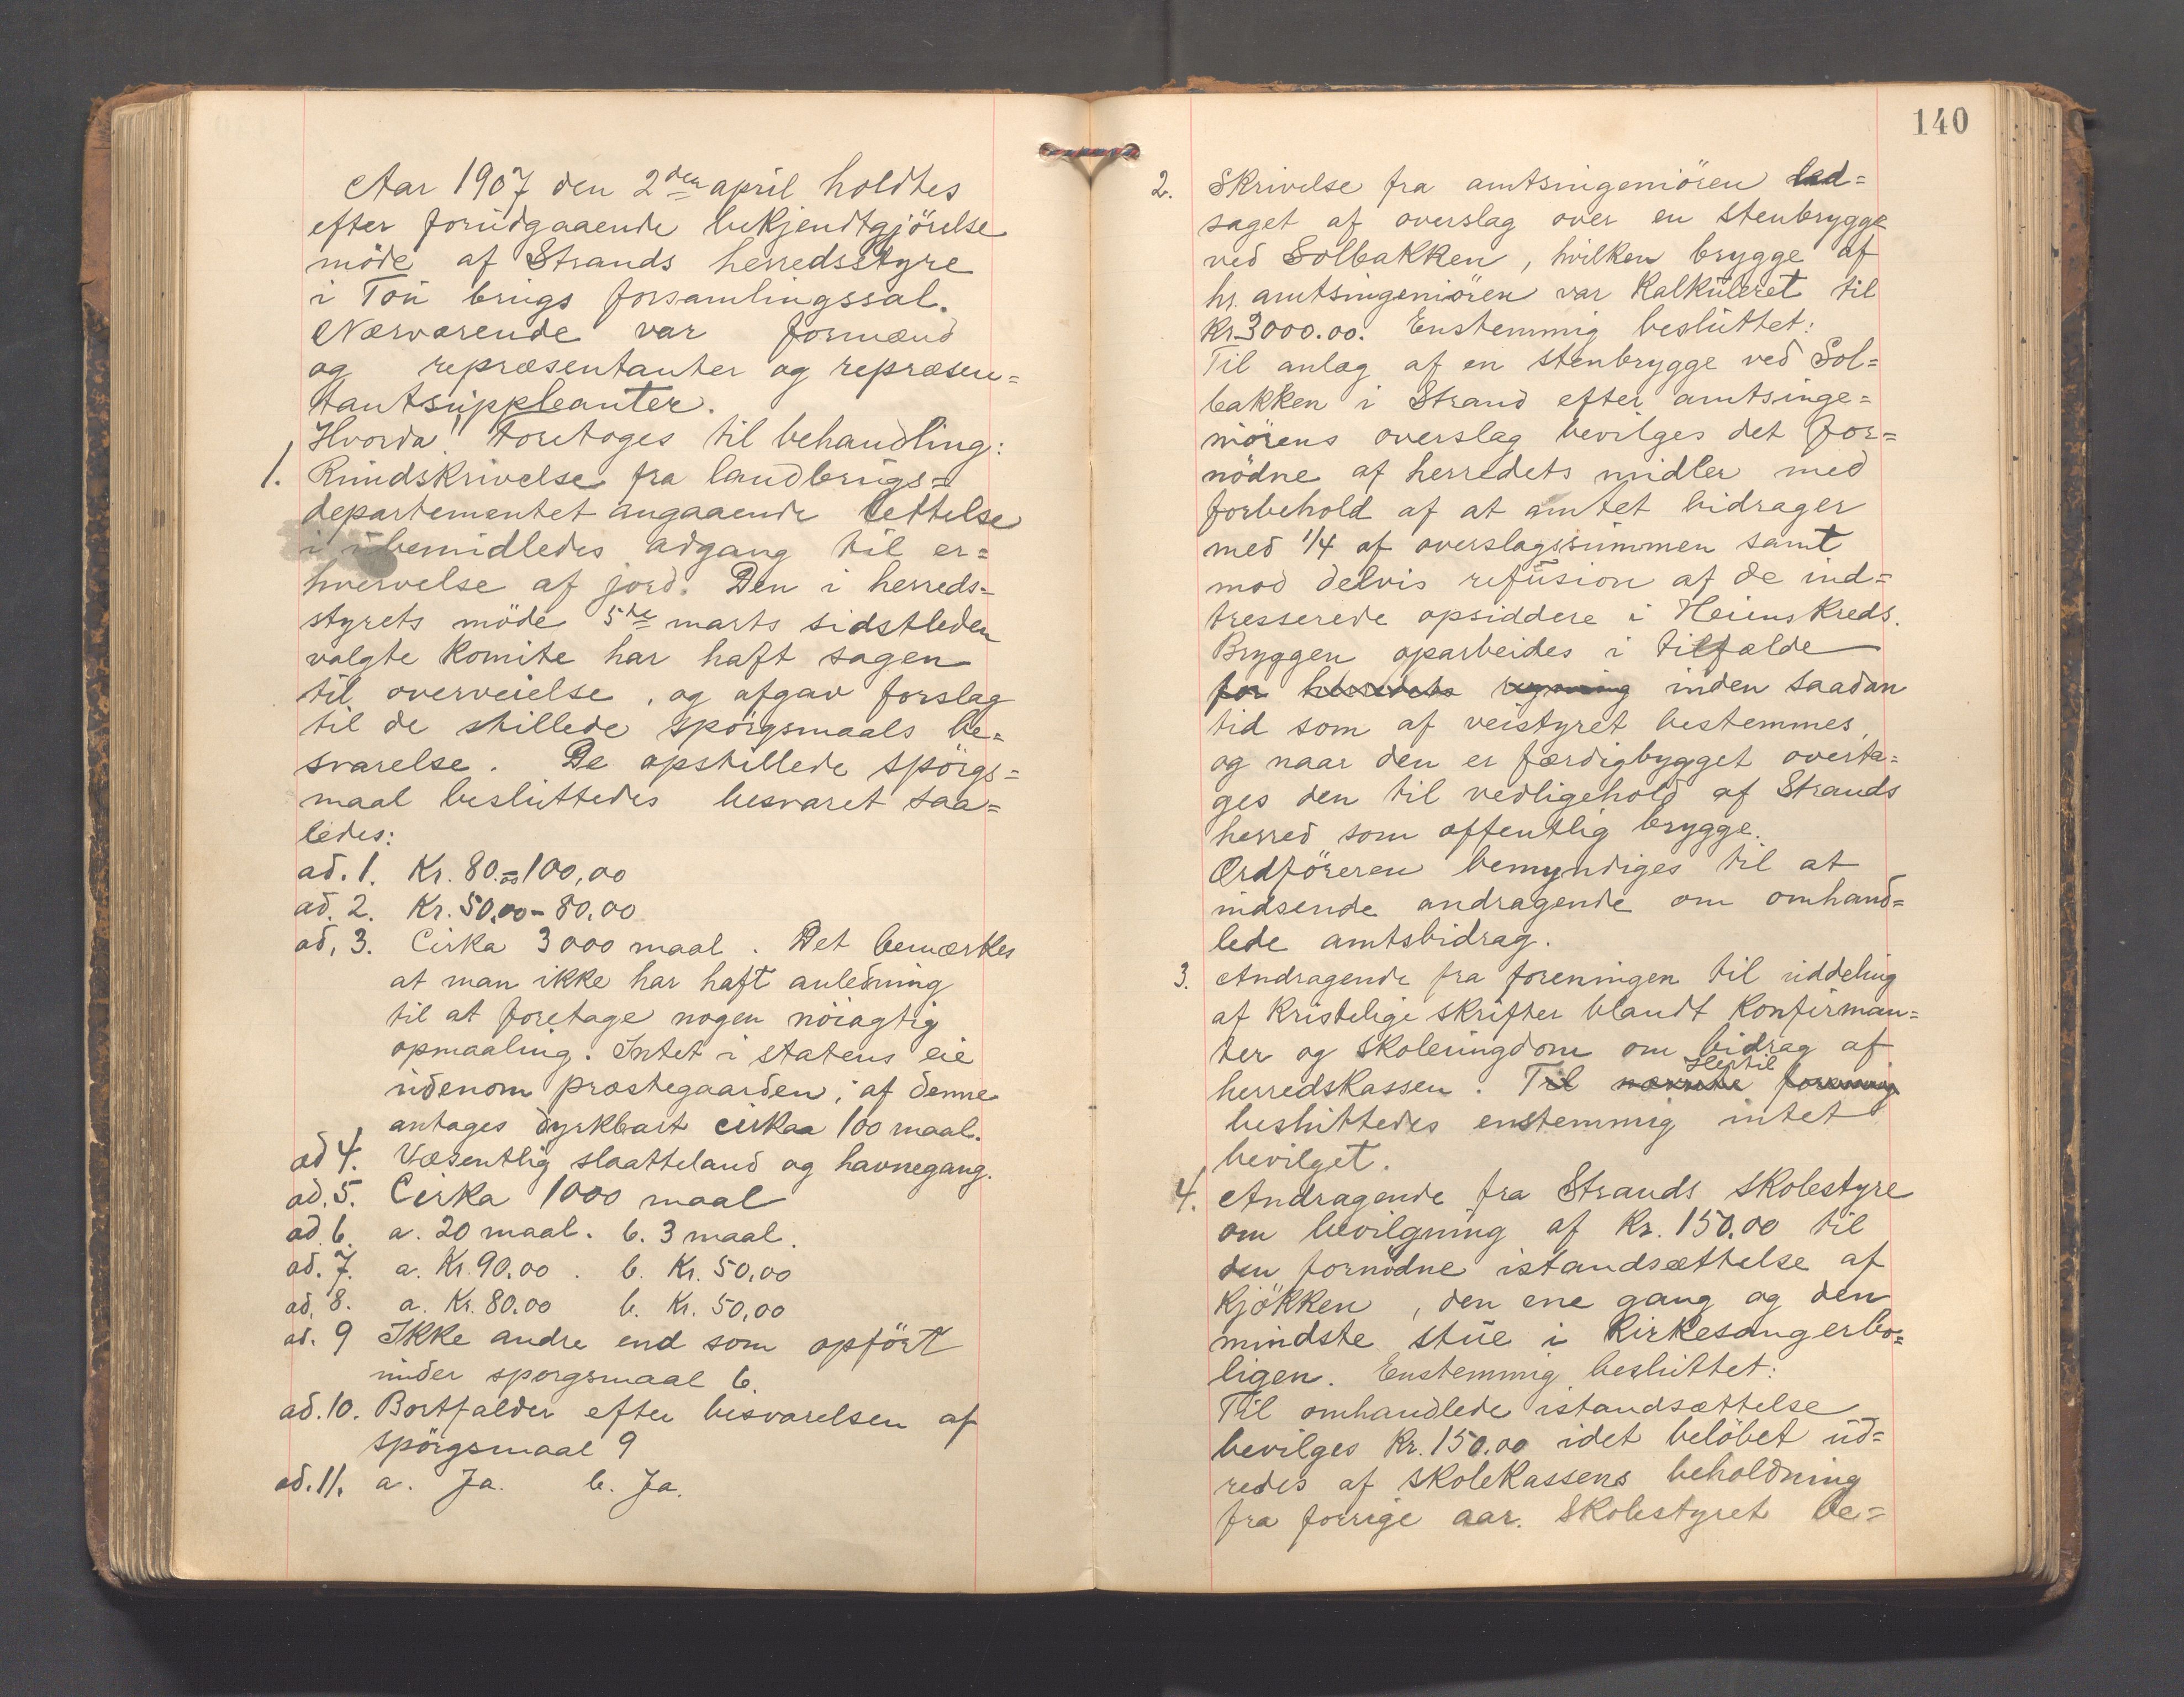 Aar 1907 den 2den april holdtes
efter forudgaaende bekjendtgjörelse
möde af Strands herredsstyre
i Tou brugs forsamlingssal.
Nærværende var formænd
og repræsentanter og repræsen=
tantsuppleanter.
Hvorda foretoges til behandling:
1. Rundskrivelse fra landbrugs=
departementet angaaende lettelse
i ubemidledes adgang til er=
hvervelse af jord. Den i herreds=
styrets möde 5te marts sidstleden
valgte komite har haft sagen
til overveielse, og afgav forslag
til de stillede spörgsmaals be=
svarelse. De opstillede spörgs=
maal besluttedes besvaret saa=
ledes:
ad. 1. Kr. 80.00=100,00
ad. 2. Kr. 50,00-80,00
ad. 3. Cirka 3000 maal. Det bemærkes
at man ikke har haft anledning
til at foretage nogen nöiagtig
opmaaling. Intet i statens eie
udenom præstegaarden; af denne
antages dyrkbart cirkaa 100 maal.
ad 4. Væsentlig slaatteland og havnegang.
ad. 5. Cirka 1000 maal
ad. 6. a. 20 maal. b. 3 maal.
ad. 7. a. Kr. 90.00. b. Kr. 50,00
ad. 8. a. Kr. 80.00 b. Kr. 50,00
ad. 9 Ikke andre end som opfört
under sporgsmaal 6.
ad. 10. Bortfalder efter besvarelsen af
spörgsmaal 9
ad. 11. a. Ja. b. Ja.
140
2. Skrivelse fra amtsingeniören led=
saget af overslag over en stenbrygge
ved Solbakken, hvilken brygge af
hr. amtsingeniören var kalkuleret til
Kr. 3000.00. Enstemmig besluttet:
Til anlæg af en stenbrygge ved Sol=
bakken i Strand efter amtsinge=
niörens overslag bevilges det for=
nödne af herredets midler med
forbehold af at amtet bidrager
med 1/4 af overslagssummen samt
mod delvis refusion af de ind=
tresserede opsiddere i Heiens kreds.
Bryggen oparbeides i tilfælde
for herredets regning inden saadan
tid som af veistyret bestemmes,
og naar den er færdigbygget overta=
ges den til vedligehold af Strands
herred som offentlig brygge.
Ordföreren bemyndiges til at
indsende andragende om omhand=
lede amtsbidrag.
3. Andragende fra foreningen til uddeling
af kristelige skrifter blandt konfirman=
ter og skoleungdom om bidrag af
herredskassen. Til nævnte forening Hertil
besluttedes enstemmig intet
bevilget.
4. Andragende fra Strands skolestyre
om bevilgning af Kr. 150.00 til
den fornödne istandsættelse af
kjökken, den ene gang og den
mindste stue i kirkesangerbo=
ligen. Enstemmig besluttet:
Til omhandlede istandsættelse
bevilges Kr. 150.00 idet belöbet ud=
redes af skolekassens beholdning
fra forrige aar. Skolestyret be=